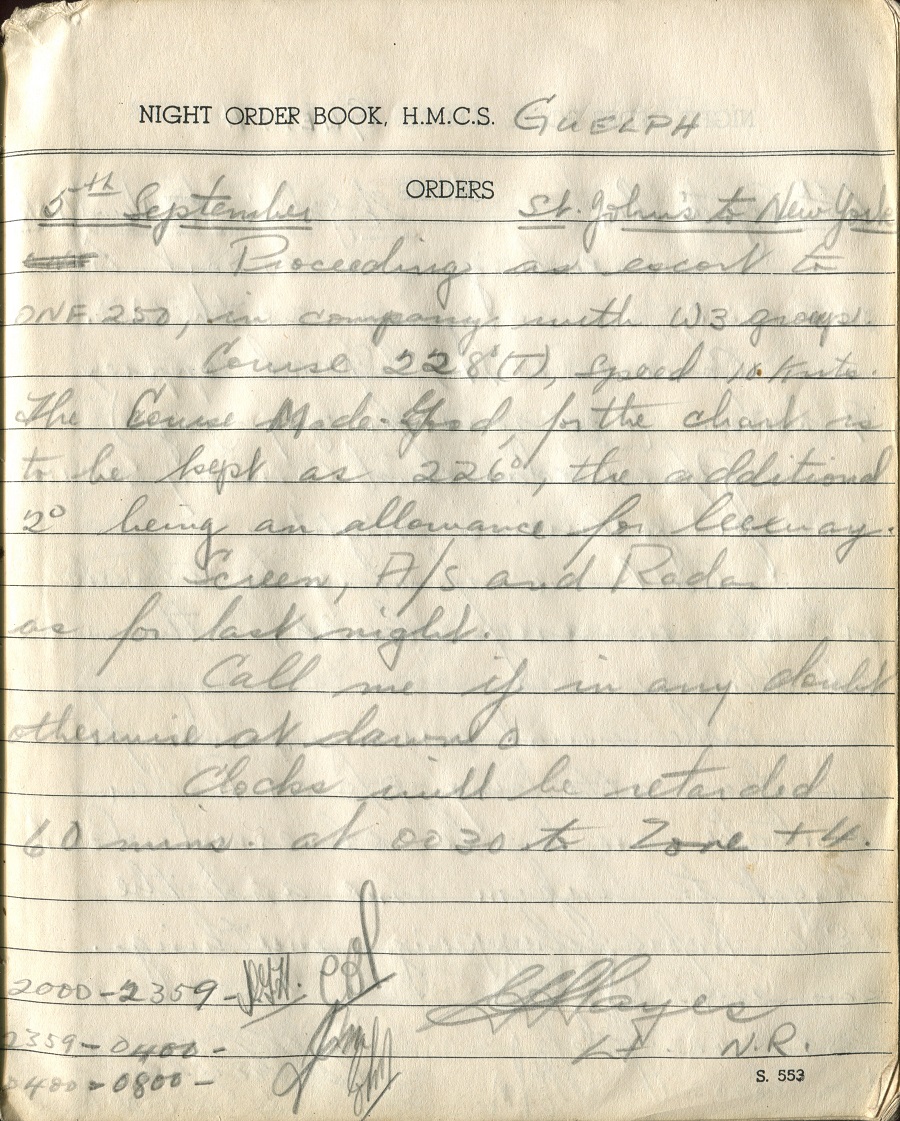 NIGHT ORDER BOOK, H.M.C.S. GUELPH
ORDERS
5th September St. John's to New York
Proceeding as escort to
ONF. 250, in company with W3 group.
Course 228°(T), speed 10 Knts.
The Course Made-Good, for the chart is
to be kept as 226°, the additional
2° being an allowance for leeway.
Screen, A/S and Radar
as for last night.
Call me if in any doubt
otherwise at dawn
Clocks will be retarded
60 mins. at 0030 to Zone +4.
2000-2359-
2359-0400-
0400-0800-
Hayes
Lt. N.R.
S. 553